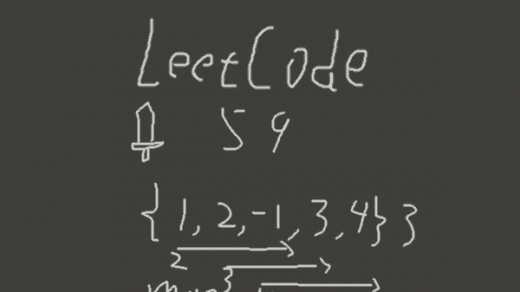 LeetCode
59
{1,2,-1,3,4}3
2
3